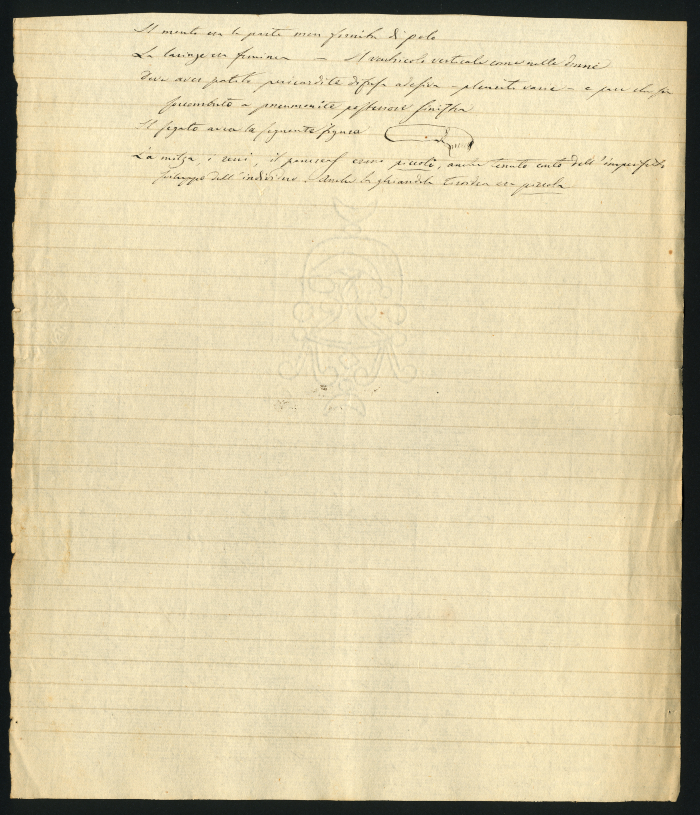 Il mento era la parte men fornita di pelo
La laringe era feminea — Il ventricolo verticale come nelle donne
Deve aver patito pericardite diffusa adesiva – pleuriti varie – e pare che sia
soccombuto a pneumonite posteriore sinistra
Il fegato avea la seguente figura
La milza, i reni, il pancreas erano piccoli, anche tenuto conto dell'imperfetto
sviluppo dell'individuo. Anche la ghiandola tiroidea era piccola